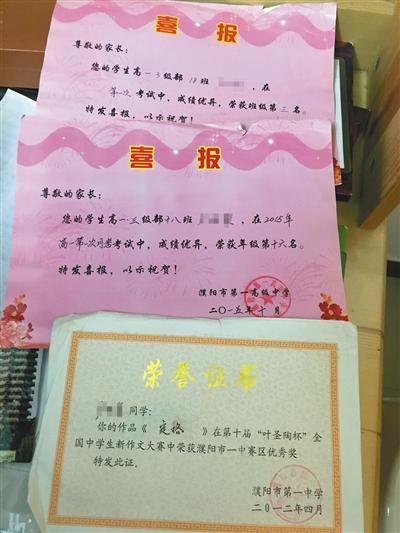 喜报
尊敬的家长：
您的学生高一·3级部18班
，在
第一次考试中，成绩优异，荣获班级第三名。
特发喜报，以示祝贺！
喜报
尊敬的家长：
您的学生高一·三级部十八班
，在2015年
高一第一次月考考试中，成绩优异，荣获年级第十六名。
特发喜报，以示祝贺！
濮阳市第一高级中学
二〇一五年十月
荣誉证书
同学：
你的作品《 定格 》在第十届“叶圣陶杯”全
国中学生新作文大赛中荣获濮阳市一中赛区优秀奖
特发此证。
濮阳市第一中学
二〇一二年四月